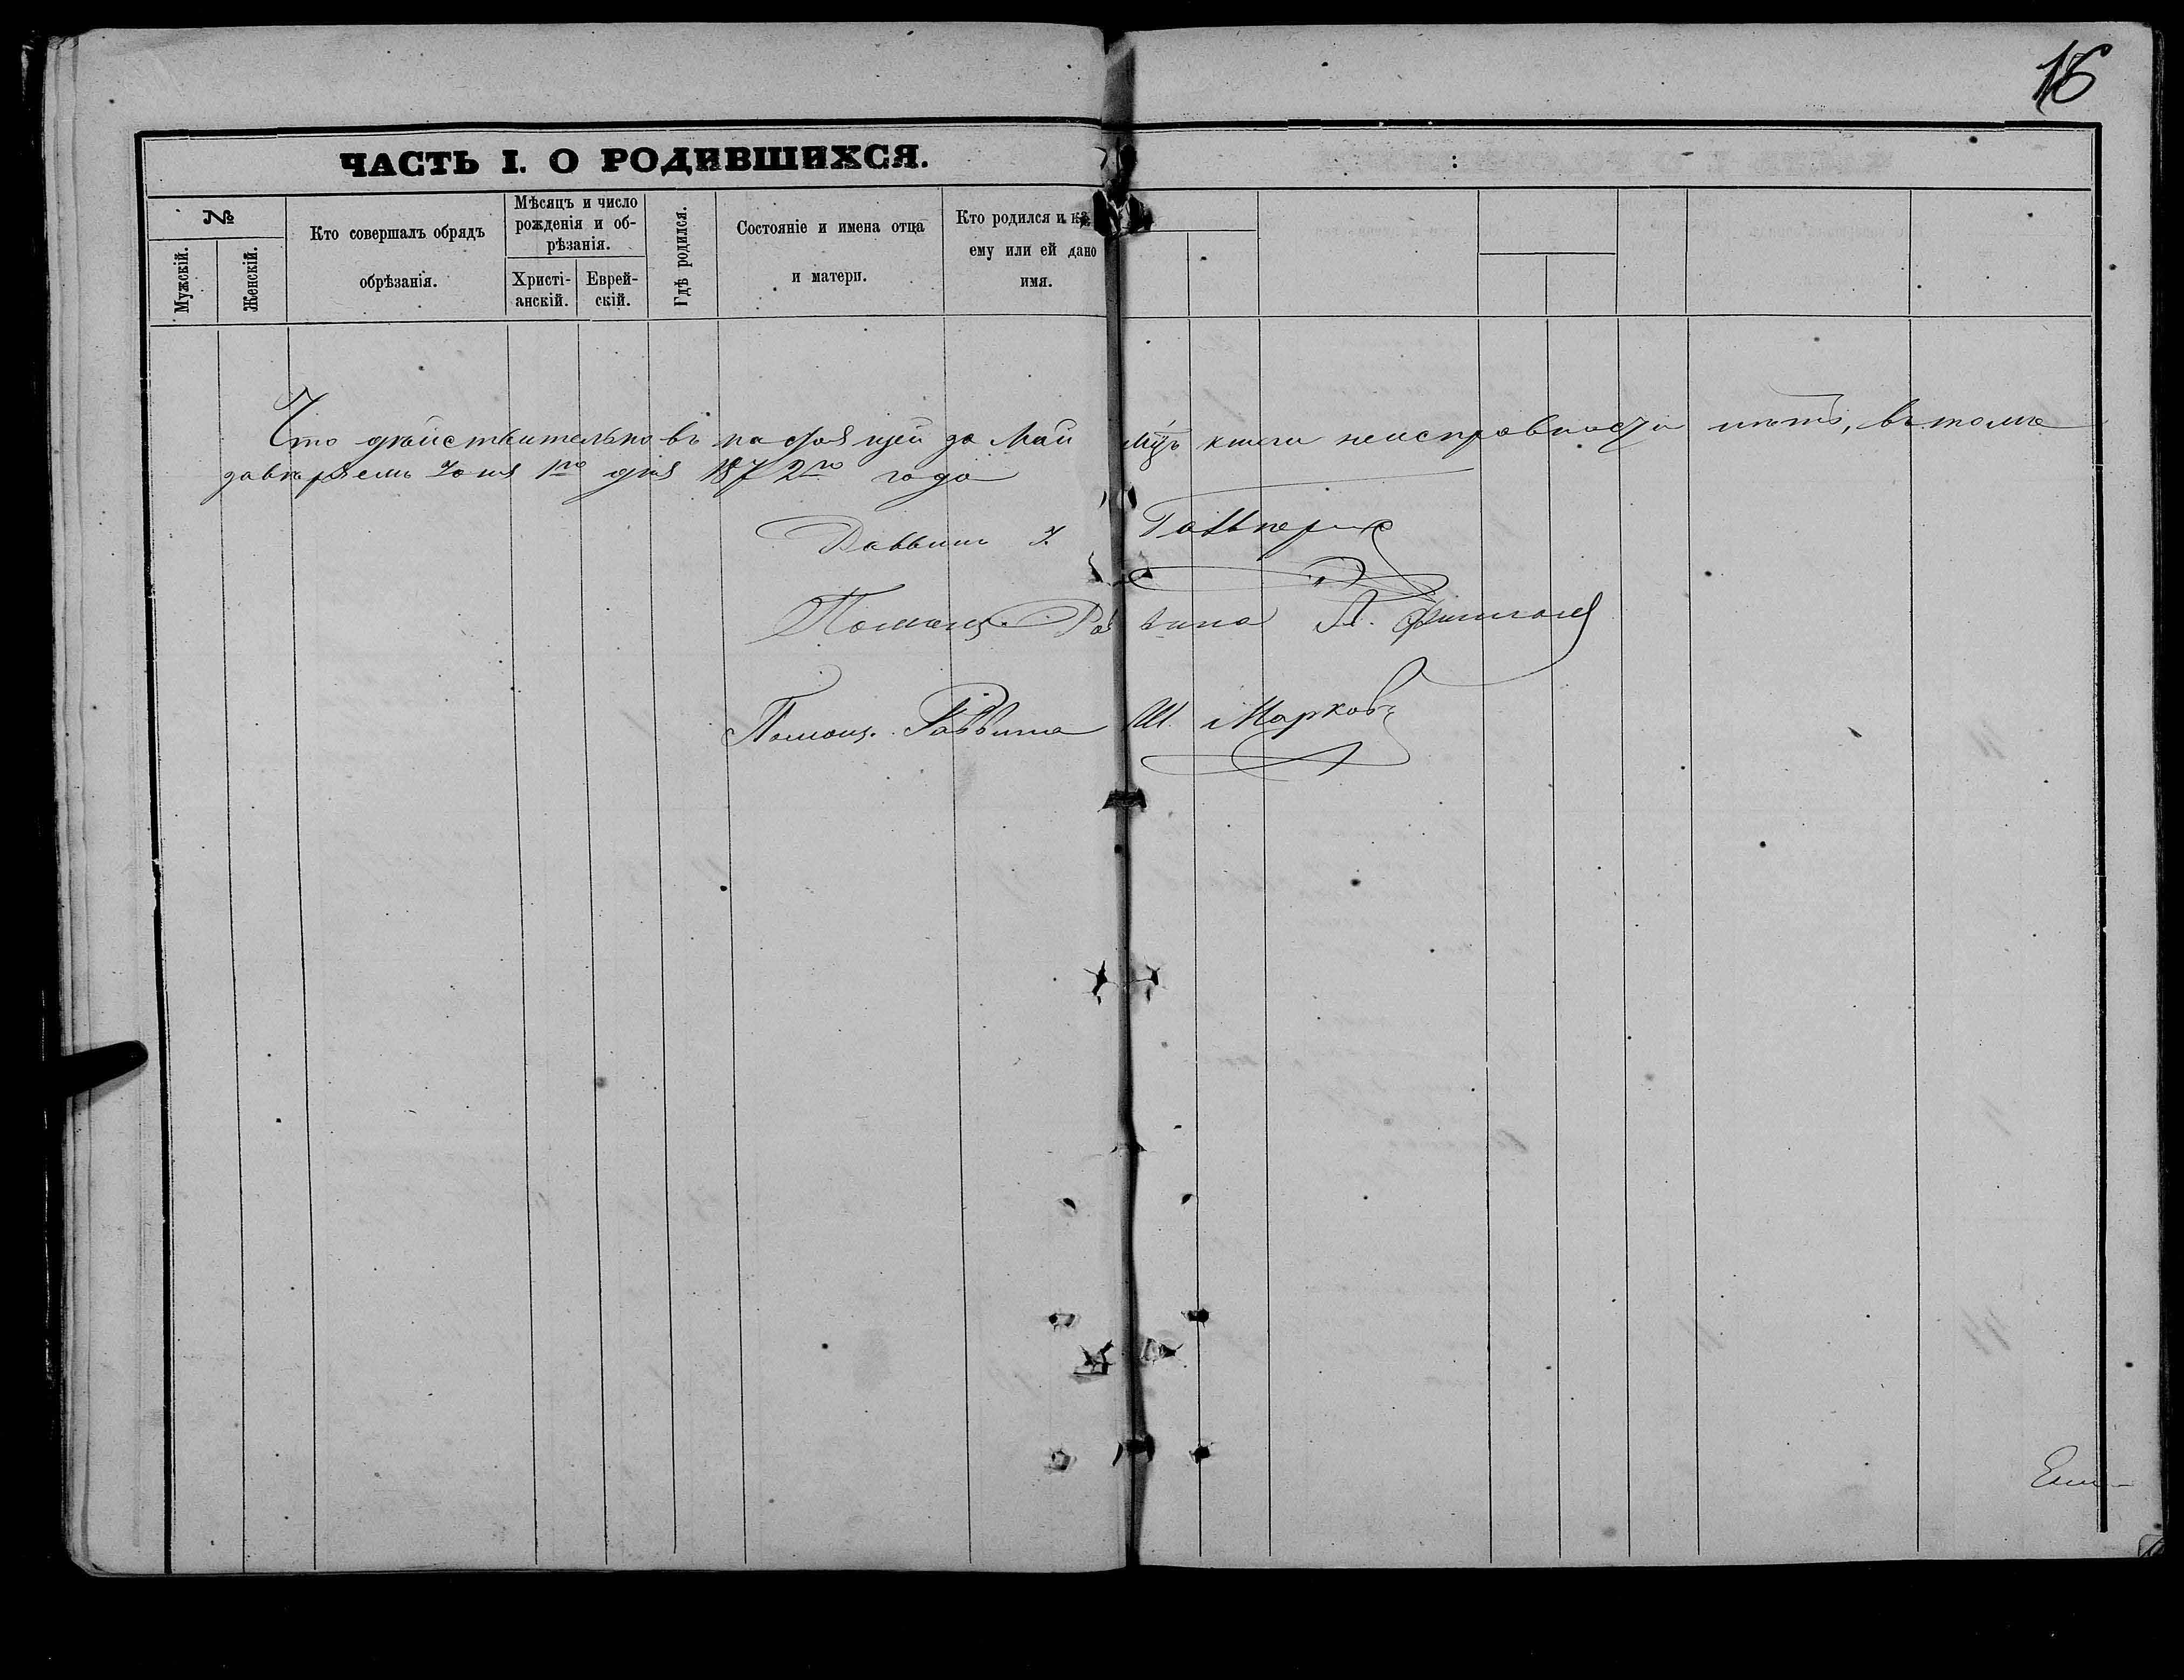 16
ЧАСТЬ I. О РОДИВШИХСЯ.
№
Мужскій.
Женскій.
Кто совершалъ обрядъ
обрѣзанія.
Мѣсяцъ и число
рожденія и об-
рѣзанія.
Христі-
анскій.
Еврей-
скій.
Гдѣ родился.
Состояніе и имена отца
и матери.
Кто родился и ка
ему или ей дано
имя.
Что дѣйствительно въ настоящей за Май мѣс. книги неисправности нѣтъ, въ томъ
завѣряемъ Юня 1го дня 1872го года
Раввинъ Гальперин
Помощ. Раввина
Помощ. Раввина Ш. Марковъ